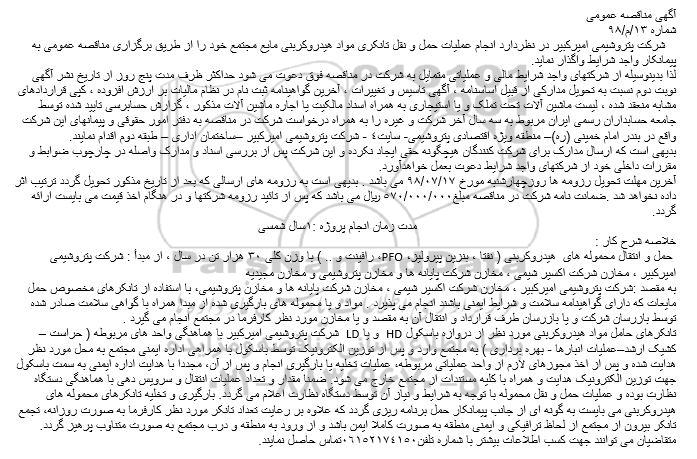 آگهی مناقصه عمومی
شماره ۹۸/م/۱۳
شرکت پتروشیمی امیرکبیر در نظردارد انجام عملیات حمل و نقل تانکری مواد هیدروکربنی مایع مجتمع خود را از طریق برگزاری مناقصه عمومی به
پیمانکار واجد شرایط واگذار نماید.
لذا بدینوسیله از شرکتهای واجد شرایط مالی و عملیاتی متمایل به شرکت در مناقصه فوق دعوت می شود حداکثر ظرف مدت پنج روز از تاریخ نشر آگهی
نوبت دوم نسبت به تحویل مدارکی از قبیل اساسنامه ، آگهی تاسیس و تغییرات ، آخرین گواهینامه ثبت نام در نظام مالیات بر ارزش افزوده ، کپی قراردادهای
مشابه منعقد شده ، لیست ماشین آلات تحت تملک و یا استیجاری به همراه اسناد مالکیت یا اجاره ماشین آلات مذکور ، گزارش حسابرسی تایید شده توسط
جامعه حسابداران رسمی ایران مربوط به سه سال آخر شرکت و غیره را به همراه درخواست شرکت در مناقصه به دفتر امور حقوقی و پیمانهای این شرکت
واقع در بندر امام خمینی (ره)– منطقه ویژه اقتصادی پتروشیمی- سایت٤ - شرکت پتروشیمی امیرکبیر –ساختمان اداری – طبقه دوم اقدام نمایند.
بدیهی است که ارسال مدارک برای شرکت کنندگان هیچگونه حقی ایجاد نکرده و این شرکت پس از بررسی اسناد و مدارک واصله در چارچوب ضوابط و
مقررات داخلی خود از شرکتهای واجد شرایط دعوت بعمل خواهدآورد.
آخرین مهلت تحویل رزومه ها روزچهارشنبه مورخ ۹۸/۰۷/۱۷ می باشد . بدیهی است به رزومه های ارسالی که بعد از تاریخ مذکور تحویل گردد ترتیب اثر
داده نخواهد شد .ضمانت نامه شرکت در مناقصه مبلغ۵۷۰/۰۰۰/۰۰۰ ریال می باشد که پس از تائید رزومه شرکتها و در هنگام اخذ قیمت می بایست ارائه
گردد.
مدت زمان انجام پروژه :۱سال شمسی
خلاصه شرح کار :
حمل و انتقال محموله های هیدروکربنی ( نفتا ، بنزین پیرولیز، PFO، رافینت و .. ) با وزن کلی ۳۰ هزار تن در سال ، از مبدأ : شرکت پتروشیمی
امیرکبیر ، مخازن شرکت اکسیر شیمی ، مخازن شرکت پایانه ها و مخازن پتروشیمی و مخازن مجیدیه
به مقصد :شرکت پتروشیمی امیرکبیر ، مخازن شرکت اکسیر شیمی ، مخازن شرکت پایانه ها و مخازن پتروشیمی، با استفاده از تانکرهای مخصوص حمل
مایعات که دارای گواهینامه سلامت و شرایط ایمنی باشند انجام می پذیرد . مواد و یا محموله های بارگیری شده از مبدا همراه با گواهی سلامت صادر شده
توسط بازرسان شرکت و یا بازرسان طرف قرارداد و انتقال آن به مقصد و یا مخازن مورد نظر کارفرما در مجتمع انجام می گیرد .
تانکرهای حامل مواد هیدروکربنی مورد نظر از دروازه باسکول HD و یا LD شرکت پتروشیمی امیرکبیر با هماهنگی واحد های مربوطه ( حراست –
کشیک ارشد–عملیات انبارها - بهره برداری ) به مجتمع وارد و پس از توزین الکترونیک توسط باسکول با همراهی اداره ایمنی مجتمع به محل مورد نظر
هدایت شده و پس از اخذ مجوزهای لازم از واحد عملیاتی مربوطه، عملیات تخلیه یا بارگیری انجام و پس از آن، مجددا با هدایت اداره ایمنی به سمت باسکول
جهت توزین الکترونیک هدایت و همراه با کلیه مستندات از مجتمع خارج می شود. ضمنا مقدار و تعداد عملیات انتقال و سرویس دهی با هماهنگی دستگاه
نظارت بوده و عملیات حمل و نقل محموله با توجه به شرایط و نیاز آن توسط دستگاه نظارت اعلام می گردد. بارگیری و تخلیه تانکرهای محموله های
هیدروکربنی می بایست به گونه ای از جانب پیمانکار حمل برنامه ریزی گردد که علاوه بر رعایت تعداد تانکر مورد نظر کارفرما به صورت روزانه، تجمع
تانکر بیرون از مجتمع از لحاظ ترافیکی و ایمنی منطقه به صورت کاملا ایمن باشد و از ورود به منطقه و درب مجتمع به صورت متناوب پرهیز گردد.
متقاضیان می توانند جهت کسب اطلاعات بیشتر با شماره تلفن۰۶۱۵۲۱۷٤۱۵۰تماس حاصل نمایند.